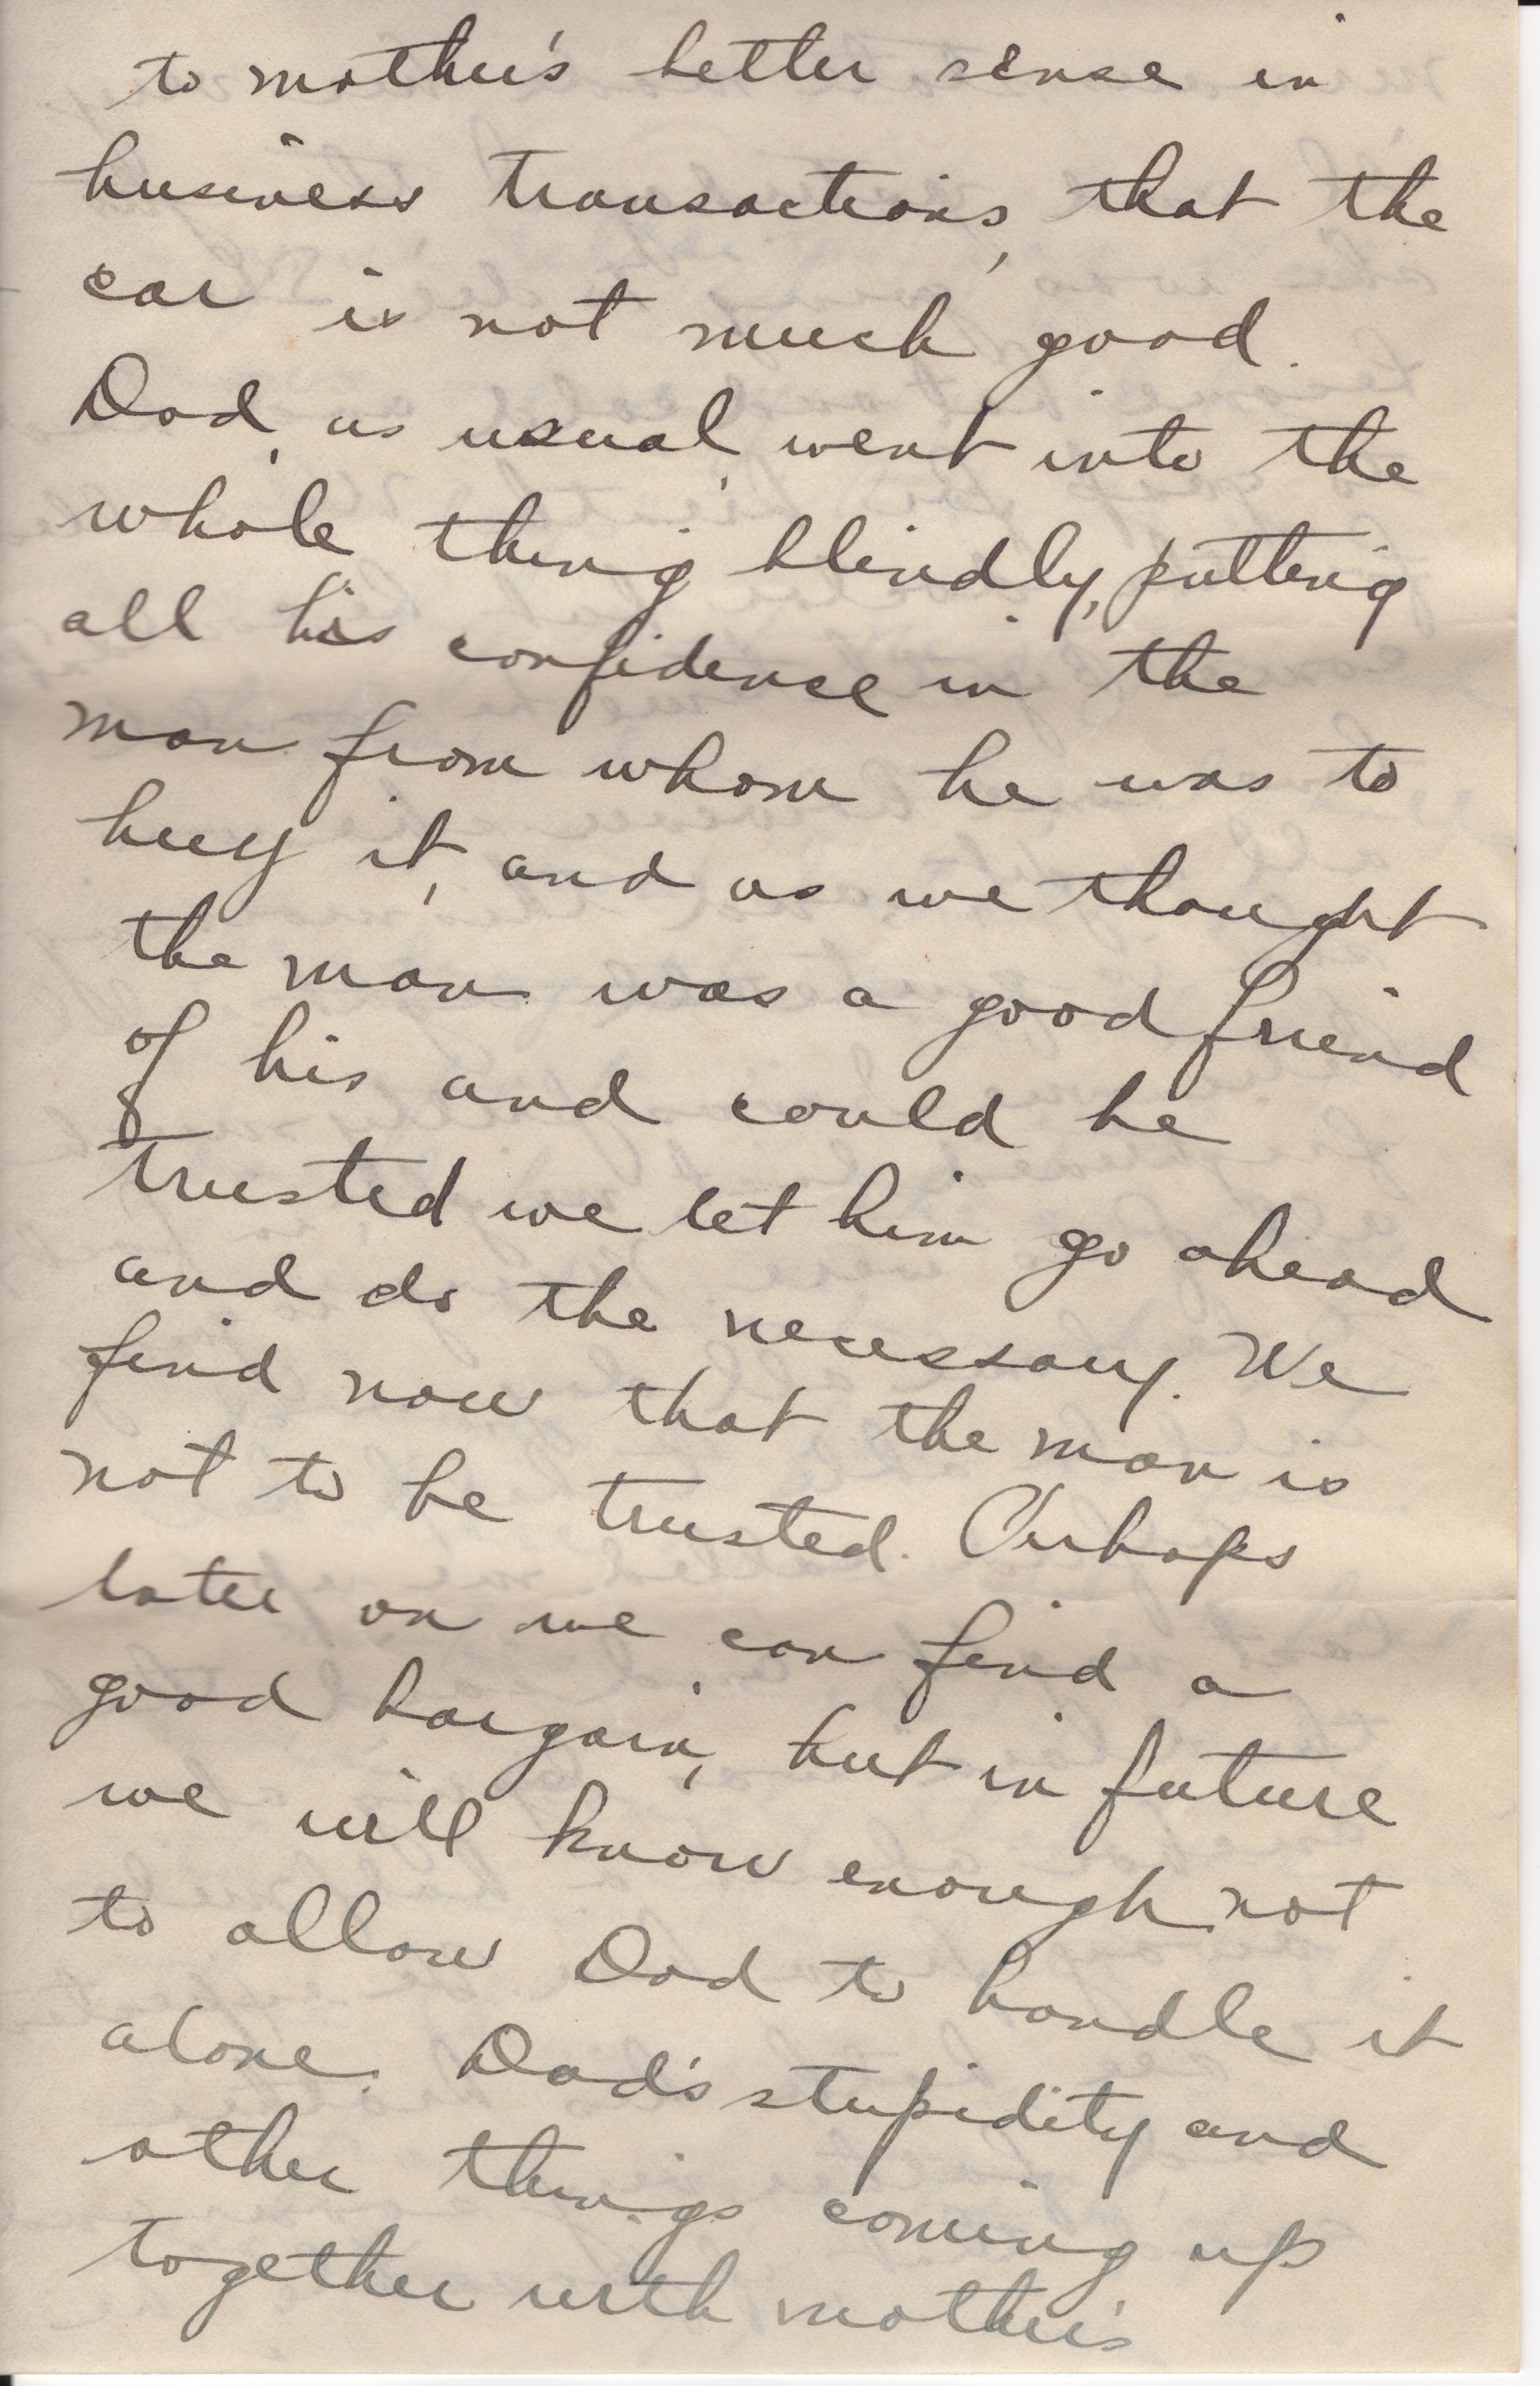 to mother's better sense in
business transactions, that the
car is not much good.
Dad, as usual, went into the
whole thing blindly, putting
all his confidence in the
man from whom he was to
buy it, and as we thought
the man was a good friend
of his and could be
trusted we let him go ahead
and do the necessary. We
find now that the man is
not to be trusted. Perhaps
later on we can find a
good bargain, but in future
we will know enough not
to allow Dad to handle it
alone. Dad's stupidity and
other things coming up
together with mother's